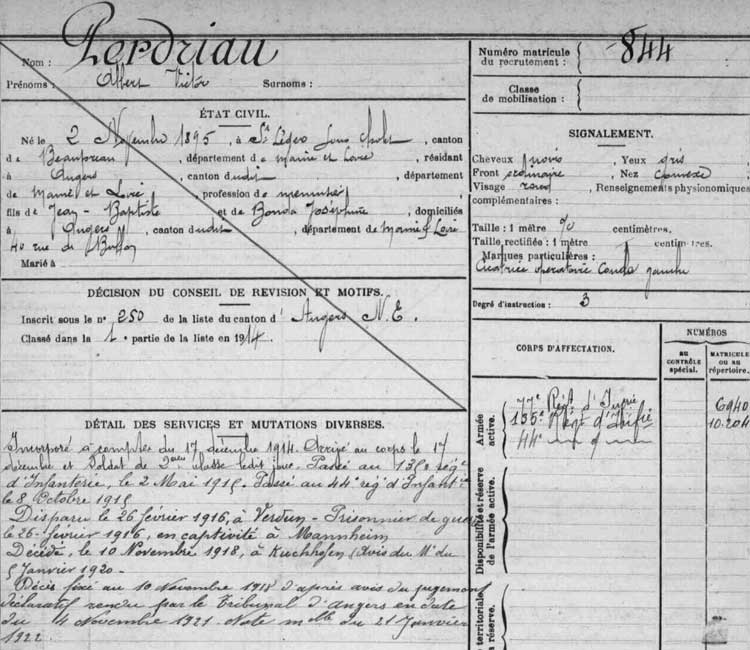 Nom : Perdriau
Prénoms : Albert Victor Surnome :
ÉTAT CIVIL.
Né le 2 Novembre 1895, à St Léger sous Cholet, canton
de Beaupreau, département de Maine et Loire, résidant
à Angers, canton dudit, département
de Maine et Loire, profession de menuisier
fils de Jean-Baptiste et de Joséphine, domiciliés
à Angers, canton dudit, département de Maine & Loire
40 rue de Buffon
Marié à
DÉCISION DU CONSEIL DE REVISION ET MOTIFS.
Inscrit sous le no 250 de la liste du canton d'Angers N.E.
Classé dans la 1e partie de la liste en 1914.
DÉTAIL DES SERVICES ET MUTATIONS DIVERSES.
Incorporé à compter du 17 décembre 1914. Arrivé au corps le 17
décembre et Soldat de 2ème classe ledit jour. Passé au 135e rég.
d'Infanterie, le 2 Mai 1915. Passé au 44e rég d'Infant.ie
le 8 Octobre 1915
Disparu le 26 février 1916, à Verdun - Prisonnier de guerre
le 26 février 1916, en captivité à Mannheim
Décédé, le 10 Novembre 1918, à Kuchhofen (Avis du M. du
5 Janvier 1920 -
Décès fixé au 10 Novembre 1918 d'après avis du jugement
déclaratif rendu par le Tribunal d'Angers en date
du 4 Novembre 1921. Note melle du 21 Janvier
1922
Numéro matricule
du recrutement : 844
Classe
de mobilisation :
SIGNALEMENT.
Cheveux noirs, Yeux gris
Front ordinaire, Nez convexe
Visage rond, Renseignements physionomiques
complémentaires :
Taille : 1 mètre 70 centimètres.
Taille rectifiée : 1 mètre centimètres.
Marques particulières :
Cicatrice opératoire coude gauche
Degré d'instruction : 3
CORPS D'AFFECTATION.
NUMÉROS
AU CONTRÔLE spécial.
MATRICULE OU AU répertoire.
Armée active.
77e Régt d'Infrie 6940
135e Régt d'Infie 10.204
44e — d —
Disponibilité et réserve de l'armée active.
territoriale
réserve.